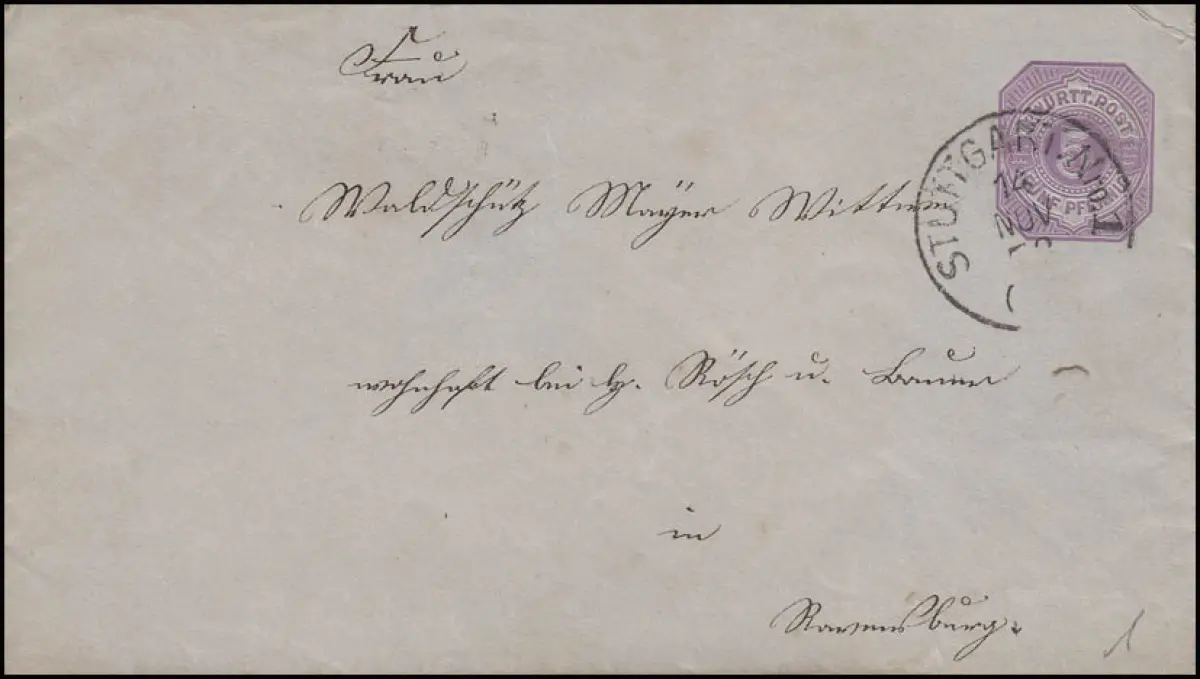 Frau
Waldschütz Mayer Wittwe
wohnhaft bei H. Rösch u. Bauer
in
Ravensburg.
WÜRTT. POST
FÜNF PFENNIG
STUTTGART. N° 1
14
NOV